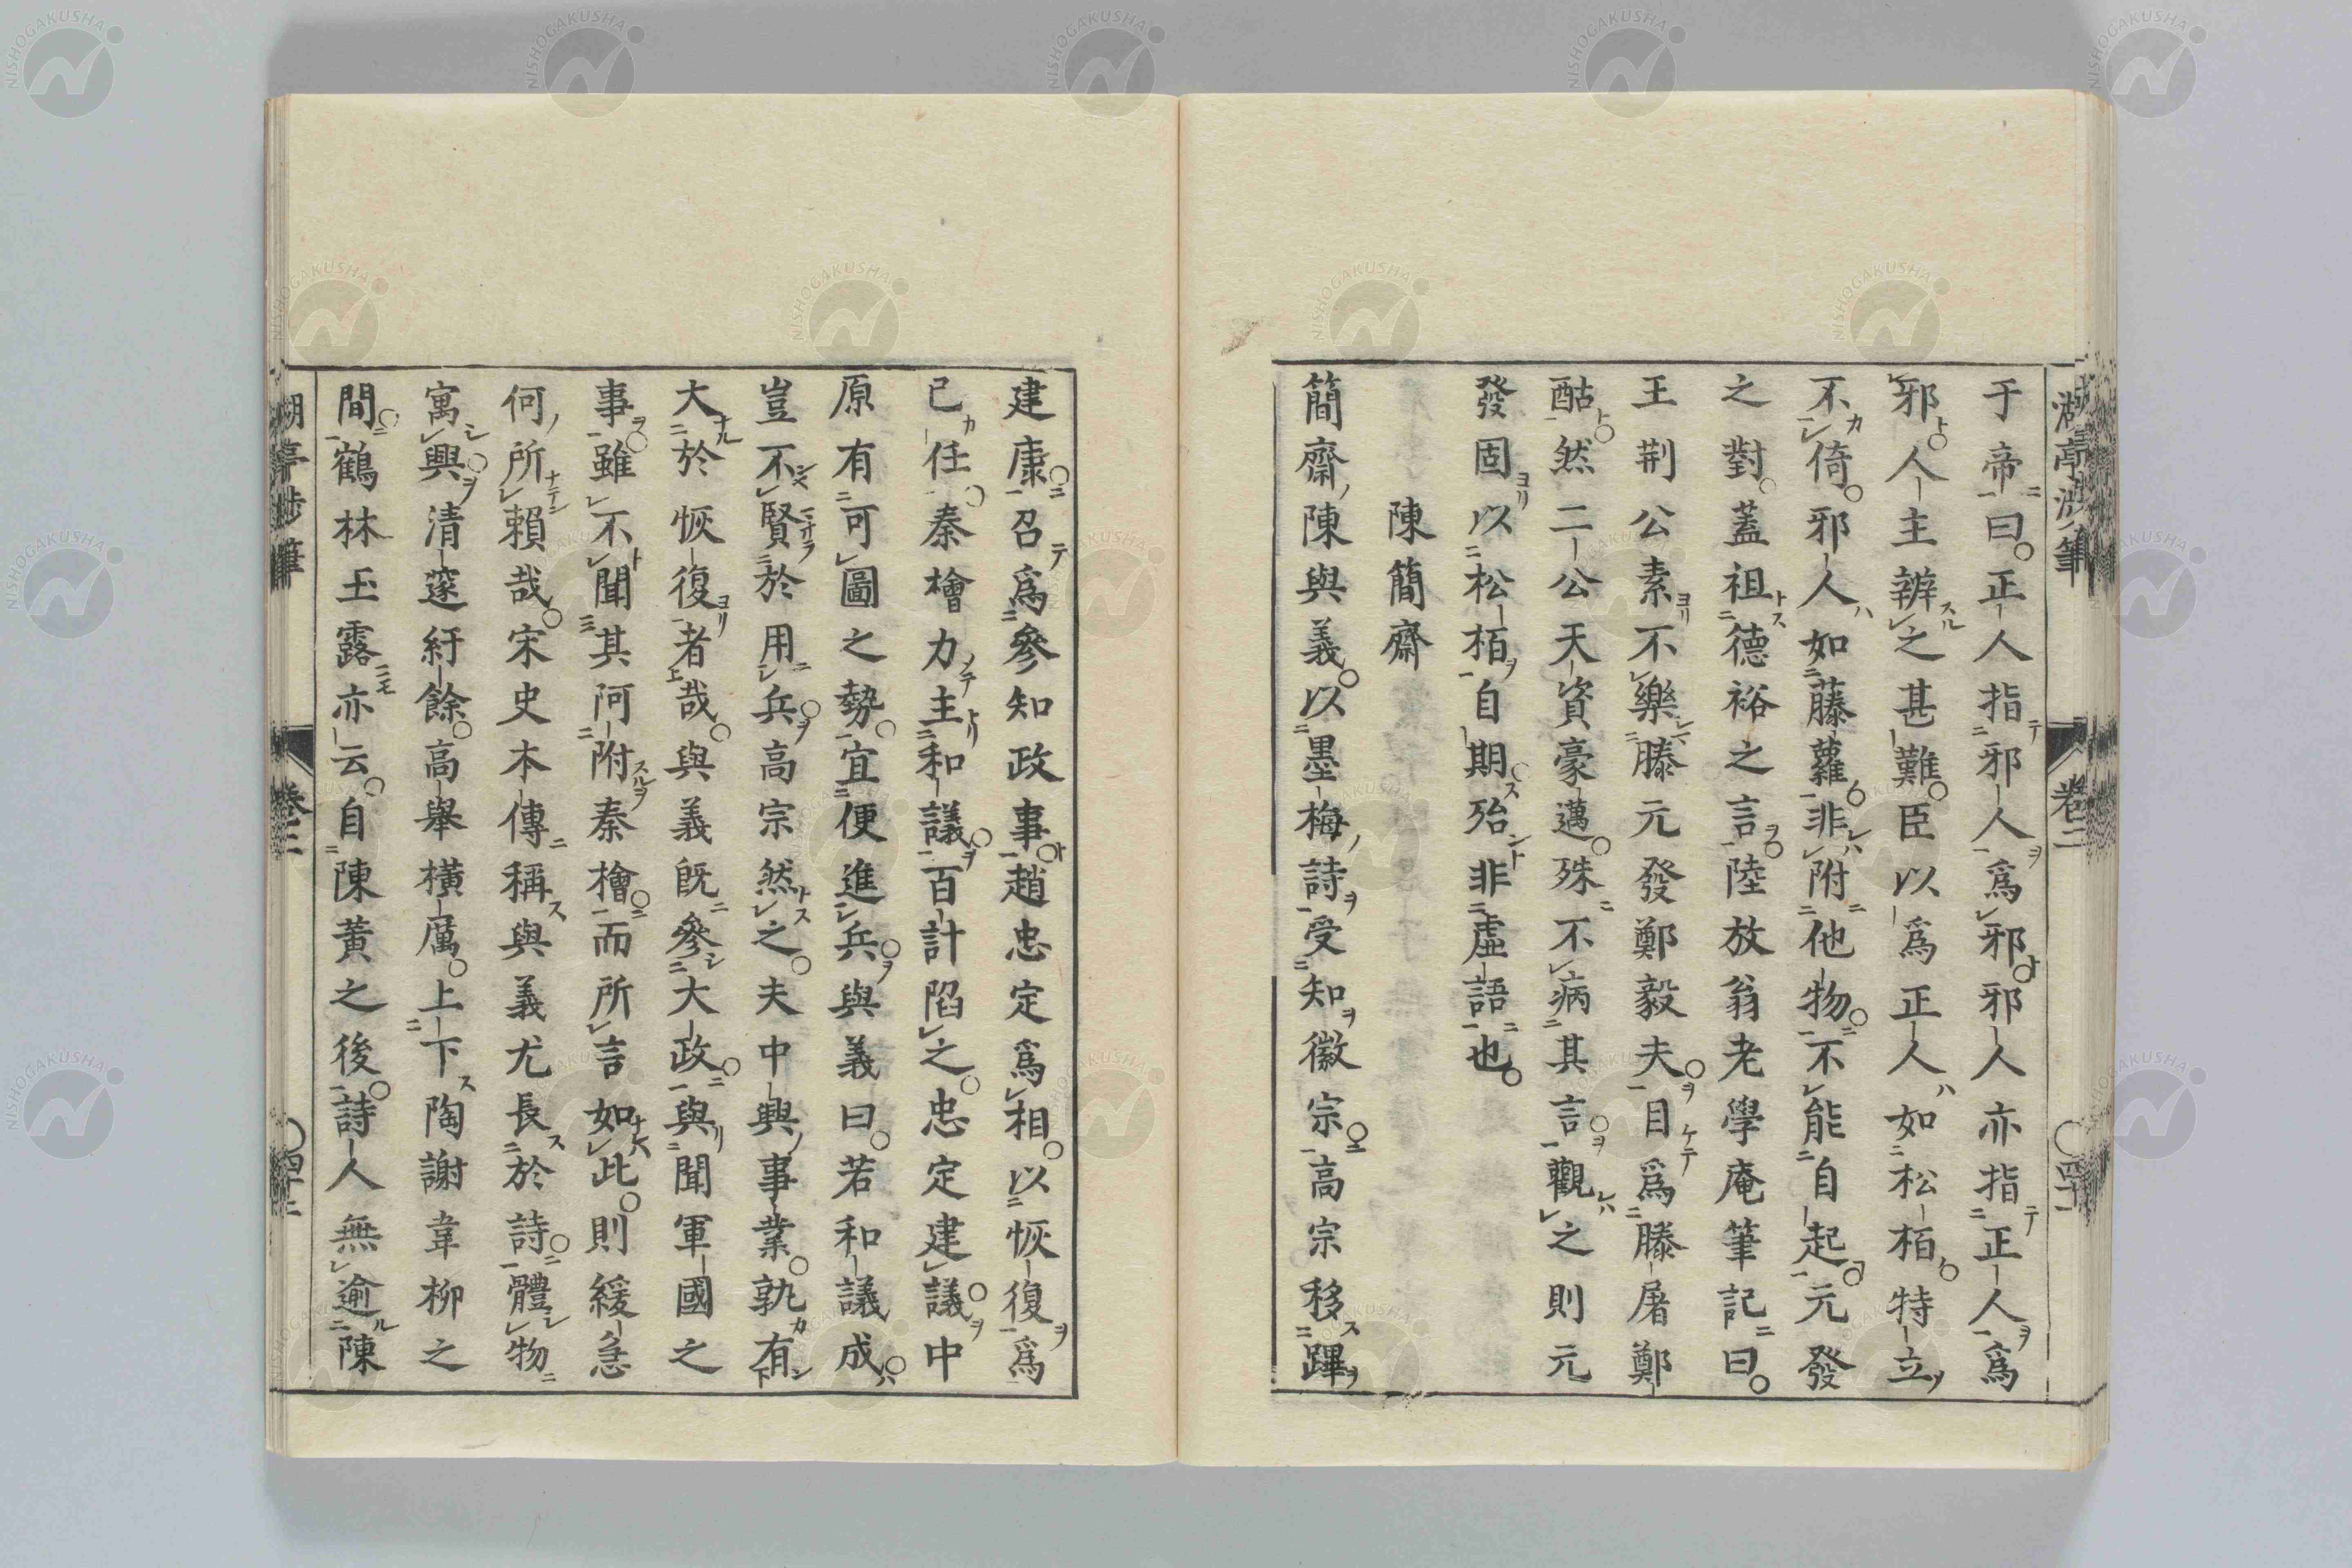 于帝曰正人指邪人爲邪邪人亦指正人爲
邪人主辨之甚難臣以爲正人如松栢特立
不倚邪人如藤蘿非附他物不能自起元發
之對蓋祖德裕之言陸放翁老學庵筆記曰
王荆公素不樂滕元發鄭毅夫目爲滕屠鄭
酤然二公天資豪邁殊不病其言觀之則元
發固以松栢自期殆非虛語也
陳簡齋
簡齋陳與義以墨梅詩受知徽宗高宗移蹕
建康召爲參知政事趙忠定爲相以恢復爲
已任秦檜力主和議百計陷之忠定建議中
原有可圖之勢宜便進兵與義曰若和議成
豈不賢於用兵高宗然之夫中興事業孰有
大於恢復者哉與義旣參大政與聞軍國之
事雖不聞其阿附秦檜而所言如此則緩急
何所賴哉宋史本傳稱與義尤長於詩體物
寓興清邃紆餘高舉橫厲上下陶謝韋柳之
間鶴林玉露亦云自陳黃之後詩人無逾陳
卷二